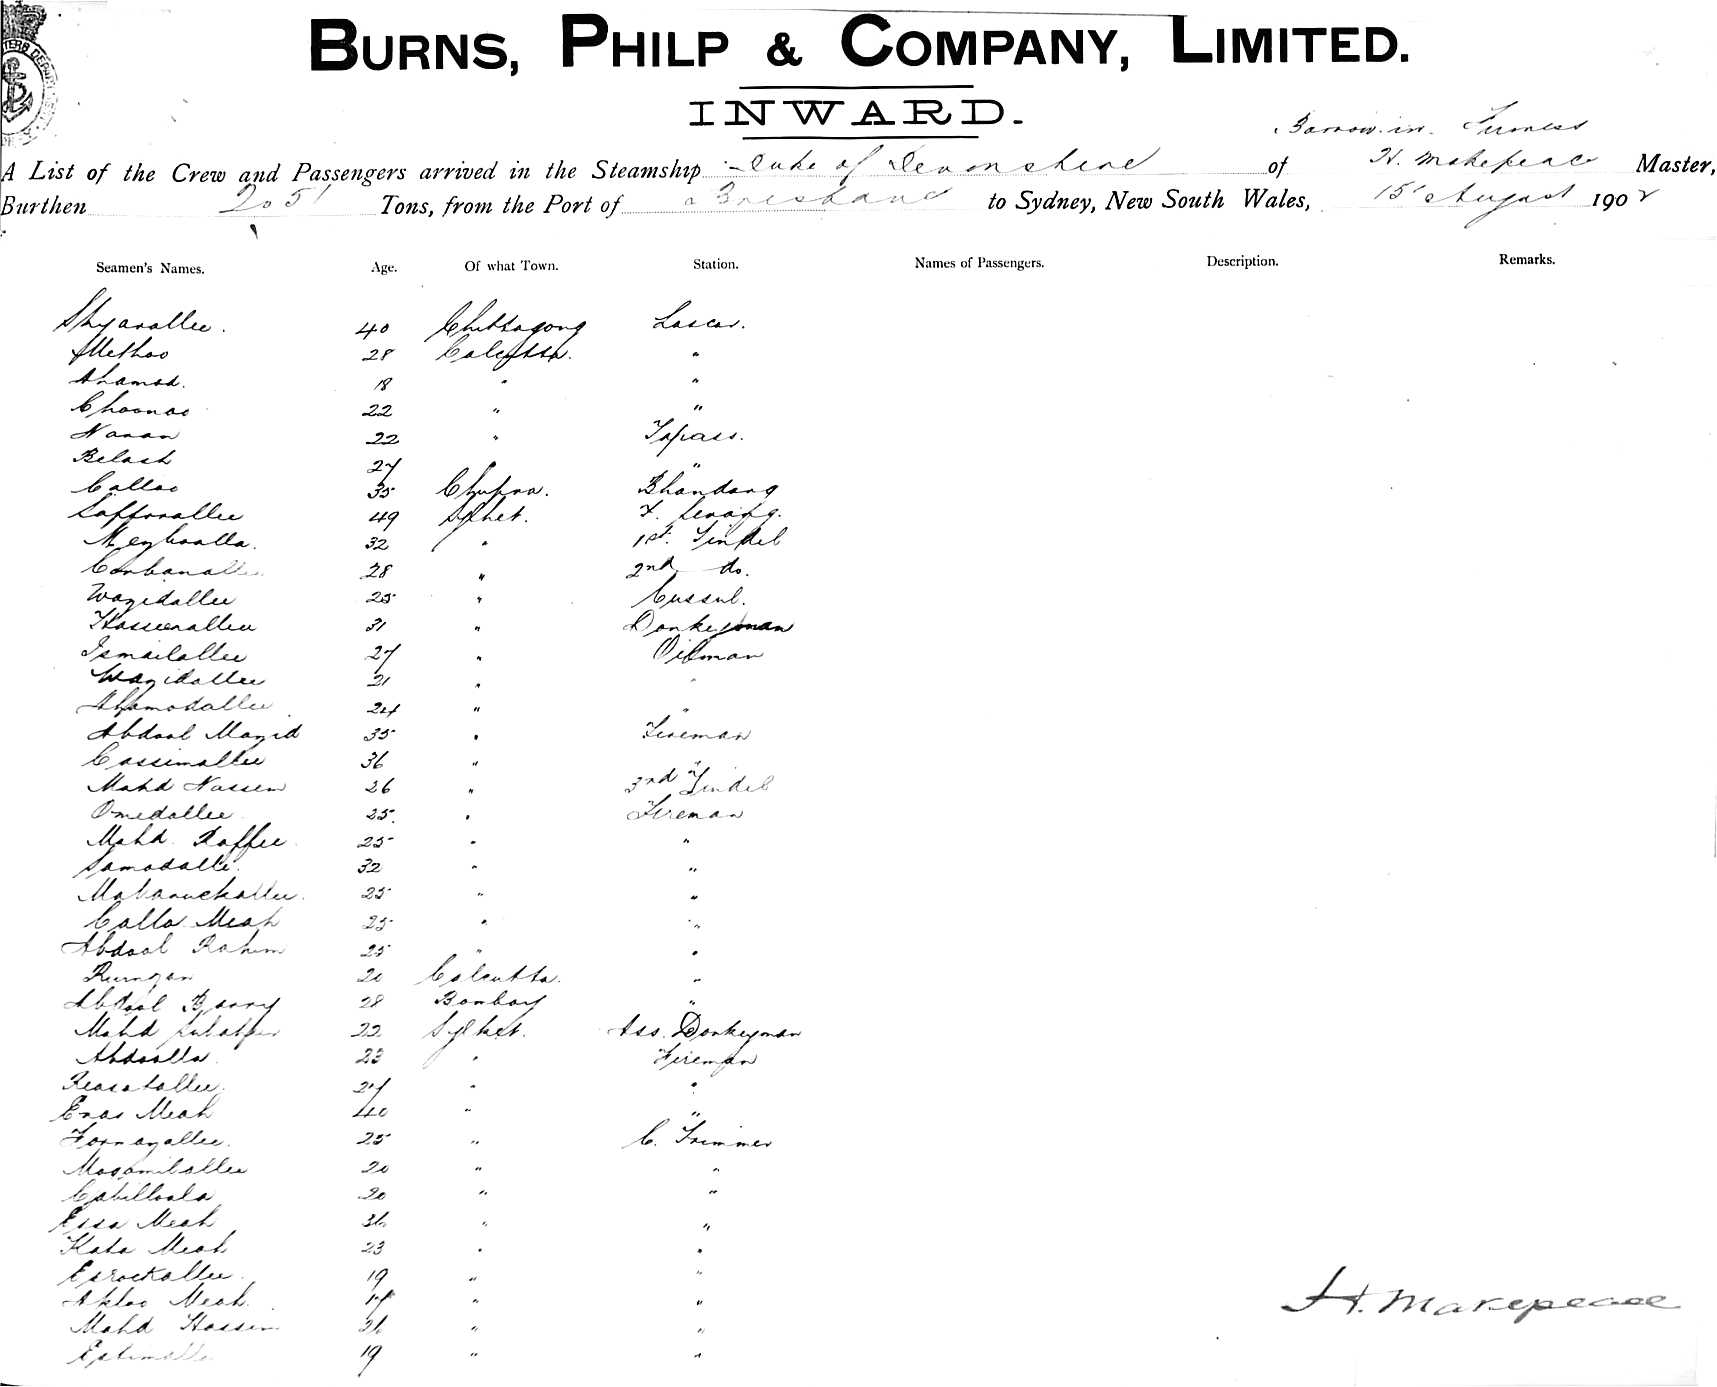 BURNS, PHILP & COMPANY, LIMITED.
INWARD.
Barrow in Furness
A List of the Crew and Passengers arrived in the Steamship Duke of Devonshire of H. Makepeace Master,
Burthen 2051 Tons, from the Port of Brisbane to Sydney, New South Wales, 15 August 1902
Seamen's Names. Age. Of what Town. Station. Names of Passengers. Description. Remarks.
Shyarallee. 40 Chittagong Lascar.
Methoo 28 Calcutta. "
Ahamed. 18 " "
Choonoo 22 " "
Nanan 22 " Topass.
Belash 27 " "
Calloo 35 Chupra. Bhandary
Safforallee 49 Sylhet. F. Serang.
Meyhoolla. 32 " 1st. Tindel
28 " 2nd do.
Wazidallee 25 " Cussul.
Hasseenallee 31 " Donkeyman
Ismailallee 27 " Oilman
Wazidallee 21 " "
Ahamodallee 24 " "
Abdool Mazid 35 " Fireman
Cassimallee 36 " "
Mahd Nassem 26 " 3rd Tindel
Omedallee 25. " Fireman
Mahd. Raffee 25 " "
Samadalli. 32 " "
Mabaruckallee. 25 " "
Calla Meah 25 " "
Abdool Rahim 25 " "
Rumzan 20 Calcutta. "
Abdool Garry 28 Bombay "
Mahd 22 Sylhet. Ass. Donkeyman
Abdoolla. 23 " Fireman
Reasatallee. 27 " "
Enas Meah 40 " "
Formozallee. 25 " C. Trimmer
Mogamilallee 20 " "
Cabilloola 20 " "
Essa Meah 36 " "
Kata Meah 23 " "
Esrockallee. 19 " "
Akloo Meah. " "
Mahd Hossein " "
19 " "
H. Makepeace